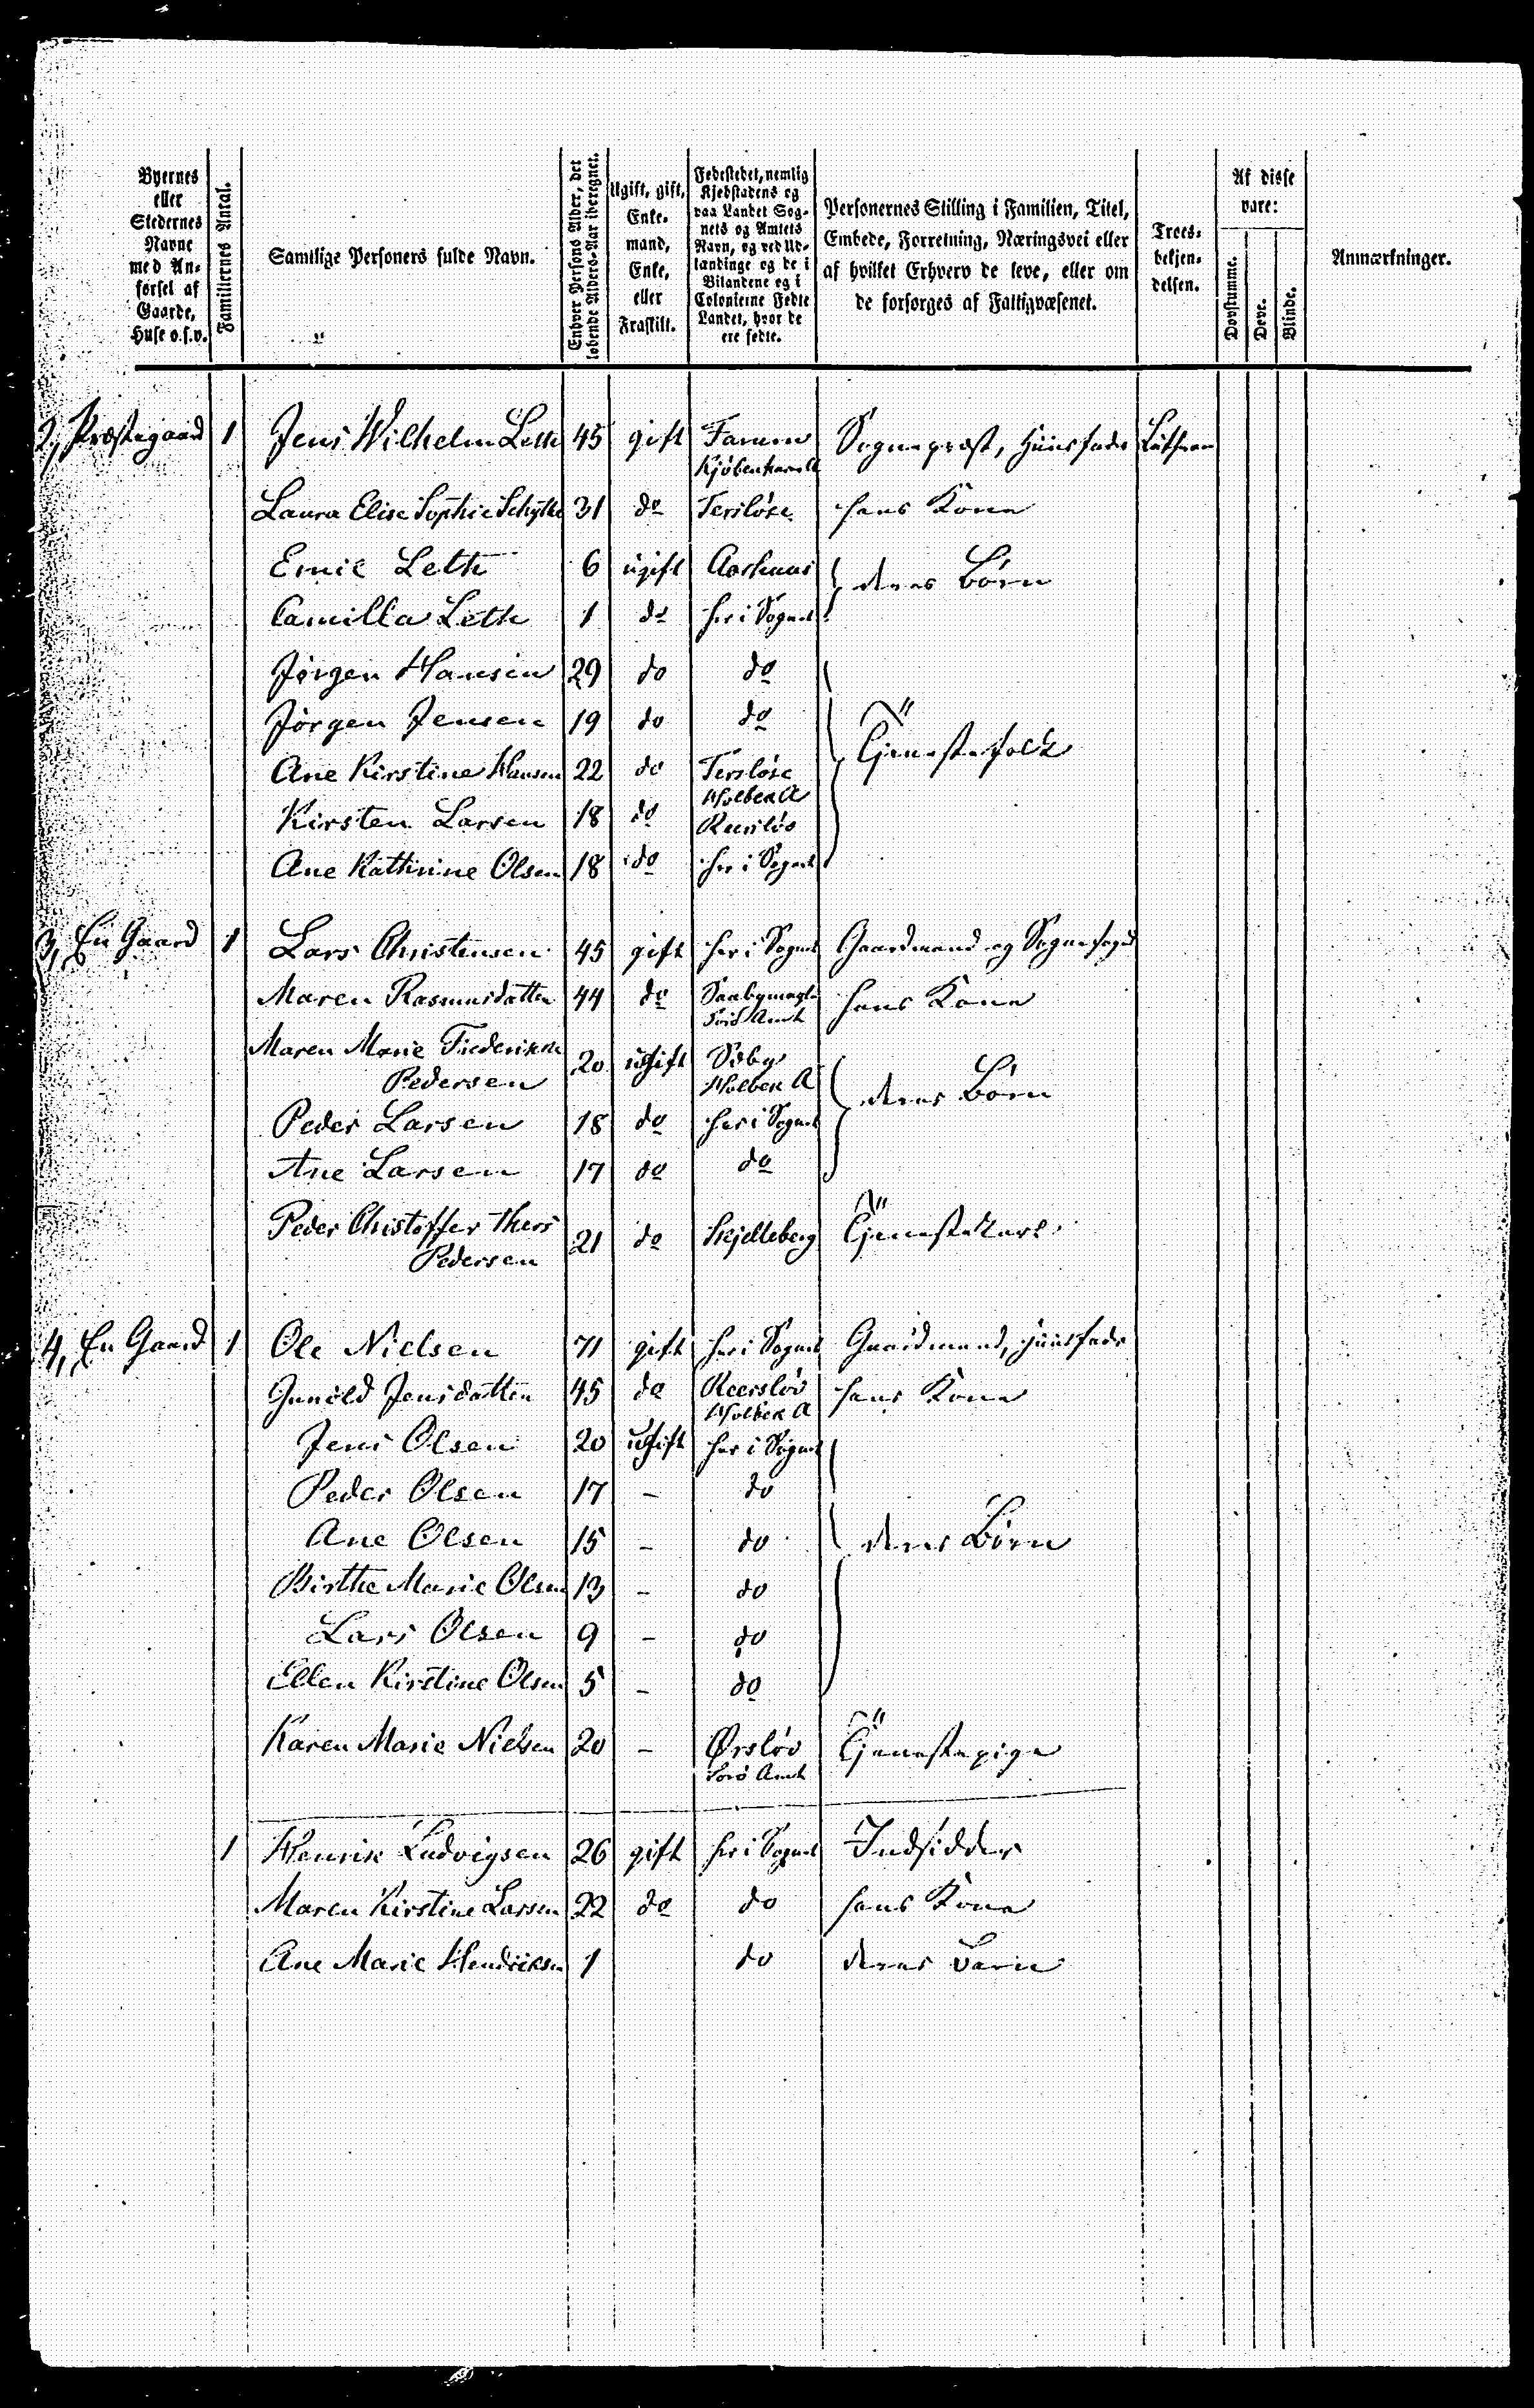 Byernes eller Stedernes Navne med Anførsel af Gaarde, Huse o.s.v.
Familiernes Antal.
Samtlige Personers fulde Navn.
Enhver Persons Alder, det løbende Alders-Aar iberegnet.
Ugift, gift, Enkemand, Enke, eller Fraskilt.
Fødestedet, nemlig Kjøbstadens og paa Landet Sognets og Amtets Navn, og ved Udlændinge og de i Bilandene og i Colonierne Fødte Landet, hvor de ere fødte.
Personernes Stilling i Familien, Titel, Embede, Forretning, Næringsvei eller af hvilket Erhverv de leve, eller om de forsørges af Fattigvæsenet.
Troesbekjendelsen.
Af disse vare:
Døvstumme.
Døve.
Blinde.
Anmærkninger.
2, Præstegaard 1 Jens Wilhelm Leth 45 gift Farum Sognepræst, Huusfader Luthran
Kjøbenhavn A
Laura Elise Sophie Schytte 31 do Tersløse hans Kone
Emil Leth 6 ugift Aarhuus deres Børn
Camilla Leth 1 do her i Sognet
Jørgen Hansen 29 do do
Jørgen Jensen 19 do do Tjenestefolk
Ane Kirstine Hansen 22 do Tersløse
Holbek A
Kirsten Larsen 18 do Reersløv
Ane Kathrine Olsen 18 do her i Sognet
3, En Gaard 1 Lars Christensen 45 gift her i Sognet Gaardmand og Sognefoged
Maren Rasmusdatter 44 do Saabymagle hans Kone
Sorø Amt
Maren Marie Frederikke
Pedersen 20 ugift Sæby deres Børn
Holbek A
Peder Larsen 18 do her i Sognet
Ane Larsen 17 do do
Peder Christoffer Thers
Pedersen 21 do Skjelleberg Tjenestekarl
4, En Gaard 1 Ole Nielsen 71 gift her i Sognet Gaardmand, Huusfader
Gunild Jensdatter 45 do Reersløv hans Kone
Holbek A
Jens Olsen 20 ugift her i Sognet
Peder Olsen 17 - do
Ane Olsen 15 - do deres Børn
Birthe Marie Olsen 13 - do
Lars Olsen 9 - do
Ellen Kirstine Olsen 5 - do
Karen Marie Nielsen 20 - Ørsløv Tjenestepige
Sorø Amt
1 Henrik Ludvigsen 26 gift her i Sognet Indsidder
Maren Kirstine Larsen 22 do do hans Kone
Ane Marie Hendriksen 1 do deres Barn